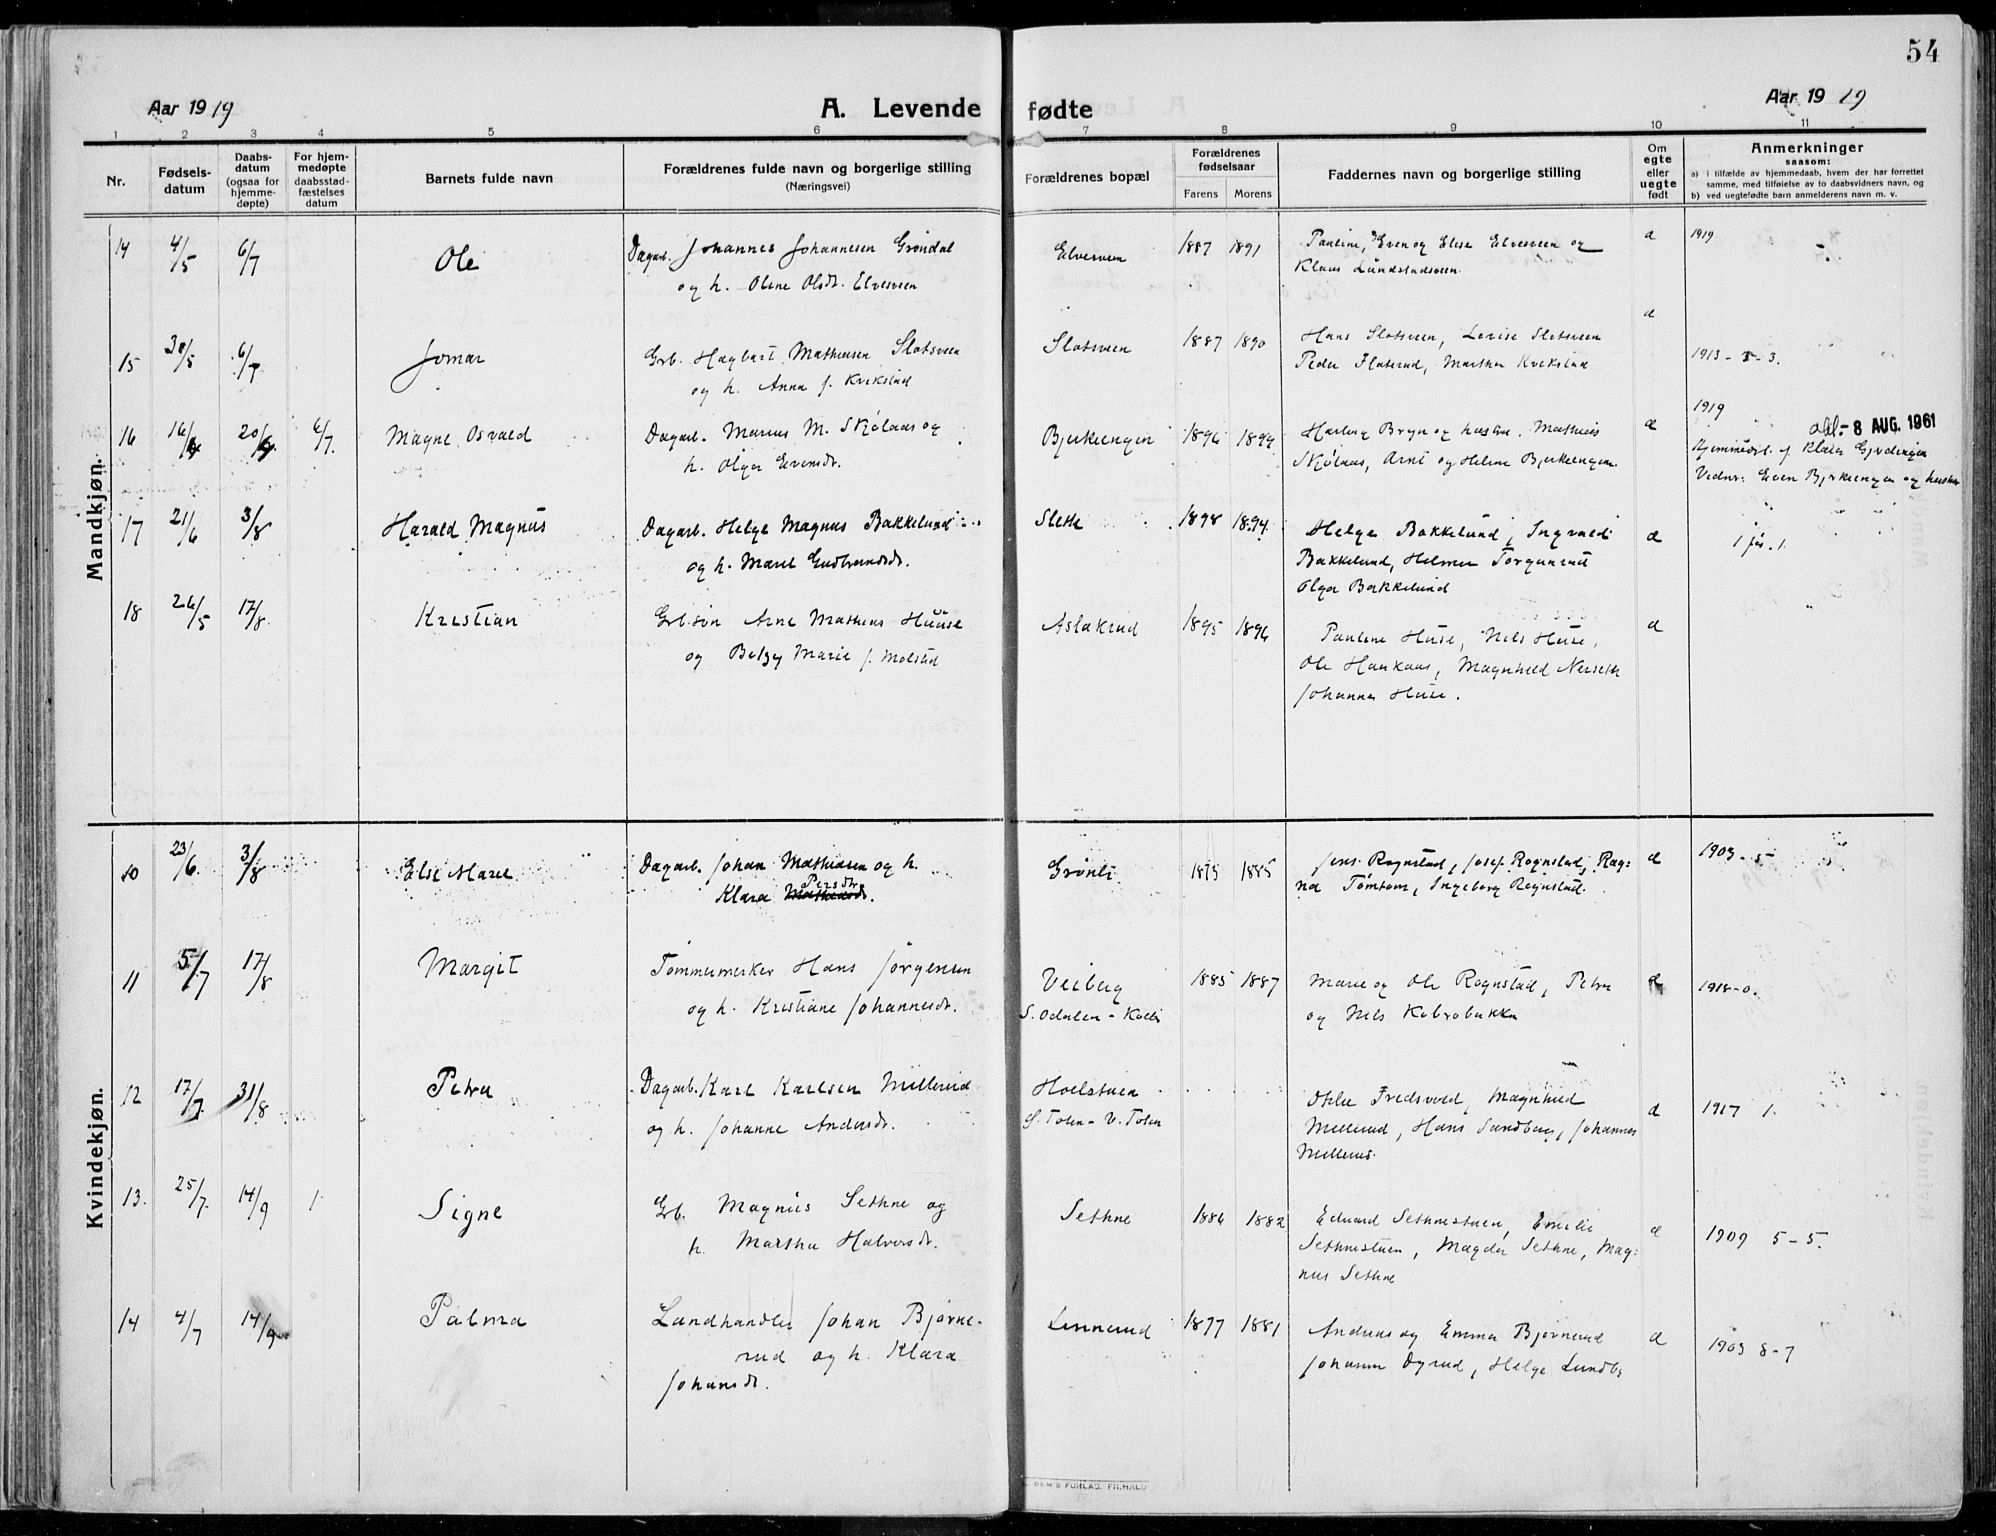 54
Aar 1919
A. Levende fødte
Aar 1919
1 2 3 4 5 6 7 8 9 10 11
Nr.
Fødsels-
datum
Daabs-
datum
(ogsaa for
hjemme-
døpte)
For hjem-
medøpte
daabsstad-
fæstelses
datum
Barnets fulde navn
Forældrenes fulde navn og borgerlige stilling
(Næringsvei)
Forældrenes bopæl
Forældrenes
fødselsaar
Farens Morens
Faddernes navn og borgerlige stilling
Om
egte
eller
uegte
født
Anmerkninger
saasom:
a) i tilfælde av hjemmedaab, hvem der har forrettet
samme, med tilføielse av to daabsvidners navn, og
b) ved uegtefødte barn anmelderens navn m. v.
Mandkjøn.
14 4/5 6/7 Ole Dagarb. Johannes Johannesen Grøndal Elvesveen 1887 1891 Pauline, Even og Elise Elvesveen og a 1919
og h. Oline Olsdr. Elvesveen Klaus Lundstadsveen
15 30/5 6/7 Jomar Grb. Hagbart Mathiesen Slotsveen Slotsveen 1887 1890 Hans Slotsveen, Lovise Slotsveen a
og h. Anna f. Kvikstad Peder Flaterud, Martha Kvikstad 1913-5-3.
16 20/6 6/7. Magne Osvald Dagarb. Marius M. Skjølaas og Bjerkeengen 1896 1894 Bryn og hustru. Mathias a 1919
h. Olga Evensdr. Skjølaas, Arne og Helene Bjerkeengen. 8 AUG. 1961
Hjemmedøbt af Klara Gjødingen
Vidner: Even Bjerkeengen og hustru
17 21/6 3/8 Harald Magnus Dagarb. Helge Magnus Bakkelund Sleth 1898 1894 Helge Bakkelund, Ingvald a
og h. Marie Gudbrandsdr. Bakkelund, Helmer Torgunrud
Olga Bakkelund
18 26/5 17/8 Kristian Grb. søn Arne Mathias Huuse Aslakrud 1895 1896 Pauline Huse, Nils Huse, a
og Betzy Marie f. Molstad Ole Haukaas, Magnhild Nerseth
Johannes Huse.
Kvindekjøn.
10 23/6 3/8 Else Marie Dagarb. Johan Mathiasen og h. Grønli 1875 1885 Jens Rognstad, Josef Rognstad, Rag- a 1903-5
Klara Persdtr. na Tømten, Ingeborg Rognstad.
11 5/7 17/8 Margit Tømmermerker Hans Jørgensen Veiberg 1885 1887 Marie og Ole Rognstad, Petra a 1918-0.
og h. Kristiane Johannesdr. S. Odalen - Kolbu og Nils Kolbrobakke
12 17/7 31/8 Petra Dagarb. Karl Karlsen Millerud Hoelstuen Fredsvold, Magnhild a 1917 1.
og h. Johanne Andersdr. Ø. Toten - V. Toten Millerud, Hans Sandberg, Johannes
Millerud.
13. 25/7. 14/9 1 Signe Grb. Magnus Sethne og Sethne 1884 1882 Edvard Sethnestuen, Emilie a 1909 5-5.
h. Martha Halvorsdr. Sethnestuen, Magda Sethne, Mag-
nus Sethne
14 4/7 14/9 Palma Landhandler Johan Bjørne- Linnerud 1877 1881 Andreas og Emma Bjørnerud a 1903 8-7
rud og h. Klara Johanne Dyrud, Helge Lundby
Johansdr.